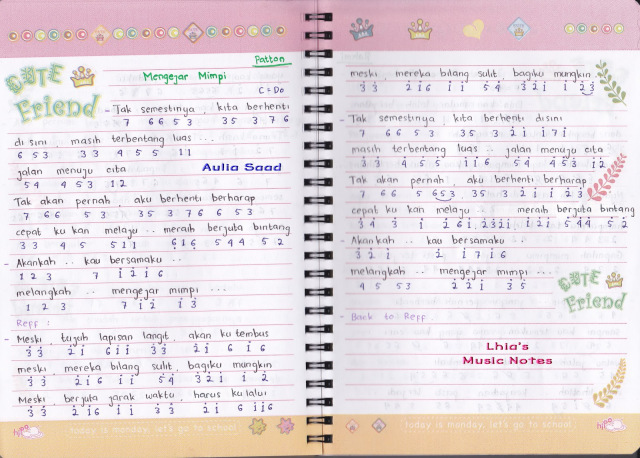 CUTE
Friend
Patton
Mengejar Mimpi
C=Do
- Tak semestinya, kita berhenti
7 6 6 5 3 3 5 3 7 6
di sini, masih terbentang luas ...
6 5 3 3 3 4 5 5 1 1
jalan menuju cita
5 4 4 5 3 1 2
Aulia Saad
Tak akan pernah, aku berhenti berharap
7 6 6 5 3 3 5 3 7 6 6 5 3
cepat ku kan melaju .. meraih berjuta bintang
3 3 4 5 5 1 1 6 1 6 5 4 4 5 2
- Akankah .. kau bersamaku ..
1 2 3 7 1 2 1 6
melangkah .. mengejar mimpi ...
1 2 3 7 1 2 1 3
Reff :
- Meski, tujuh lapisan langit, akan ku tembus
3 3 2 1 6 1 1 3 3 2 1 6 1 6
meski, mereka bilang sulit, bagiku mungkin
3 3 2 1 6 1 1 5 4 3 2 1 1 2
Meski, berjuta jarak waktu, harus ku lalui
3 3 2 1 6 1 1 3 3 2 1 6 1 1 6
hipo
today is monday, let's go to school
meski, mereka bilang sulit, bagiku mungkin
3 3 2 1 6 1 1 5 4 3 2 1 1 2 3
- Tak semestinya, kita berhenti disini
7 6 6 5 3 3 5 3 2 1 1 7 1
masih terbentang luas .. jalan menuju cita
3 3 4 5 5 1 1 6 5 4 4 5 3 1 2
Tak akan pernah, aku berhenti berharap
7 6 6 5 6 5 3 3 5 3 2 1 1 2 3
cepat ku kan melaju .. meraih berjuta bintang
3 4 3 1 2 6 1, 2 3 2 1 1 2 1 5 4 4 5 2
- Akankah .. kau bersamaku ..
3 2 1 2 1 7 1 6
melangkah .. mengejar mimpi ...
4 5 5 3 2 2 1 3 5
CUTE
Friend
- Back to Reff
Lhia's
Music Notes
today is monday, let's go to school
hipo